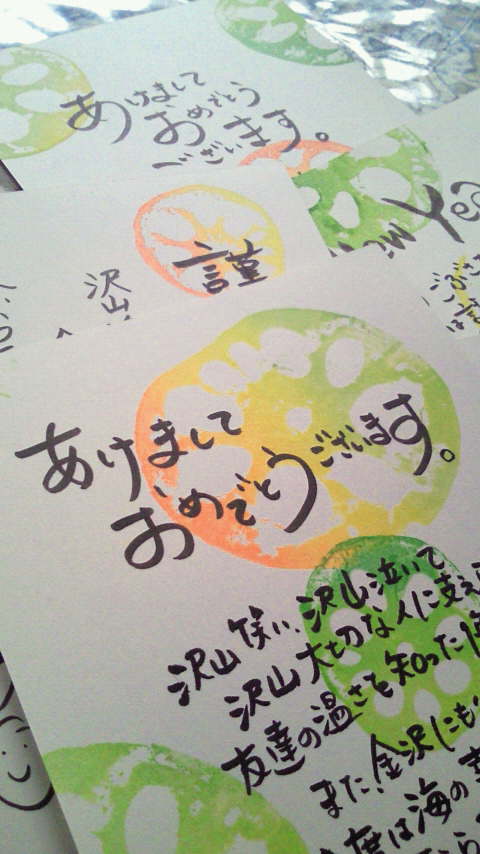 あけまして
おめでとう
ございます。
Yea
謹
沢山
あけまして
おめでとうございます。
沢山笑い、沢山泣いて
沢山大切な人に支え
友達の温さを知った
また、金沢にも
度は海の